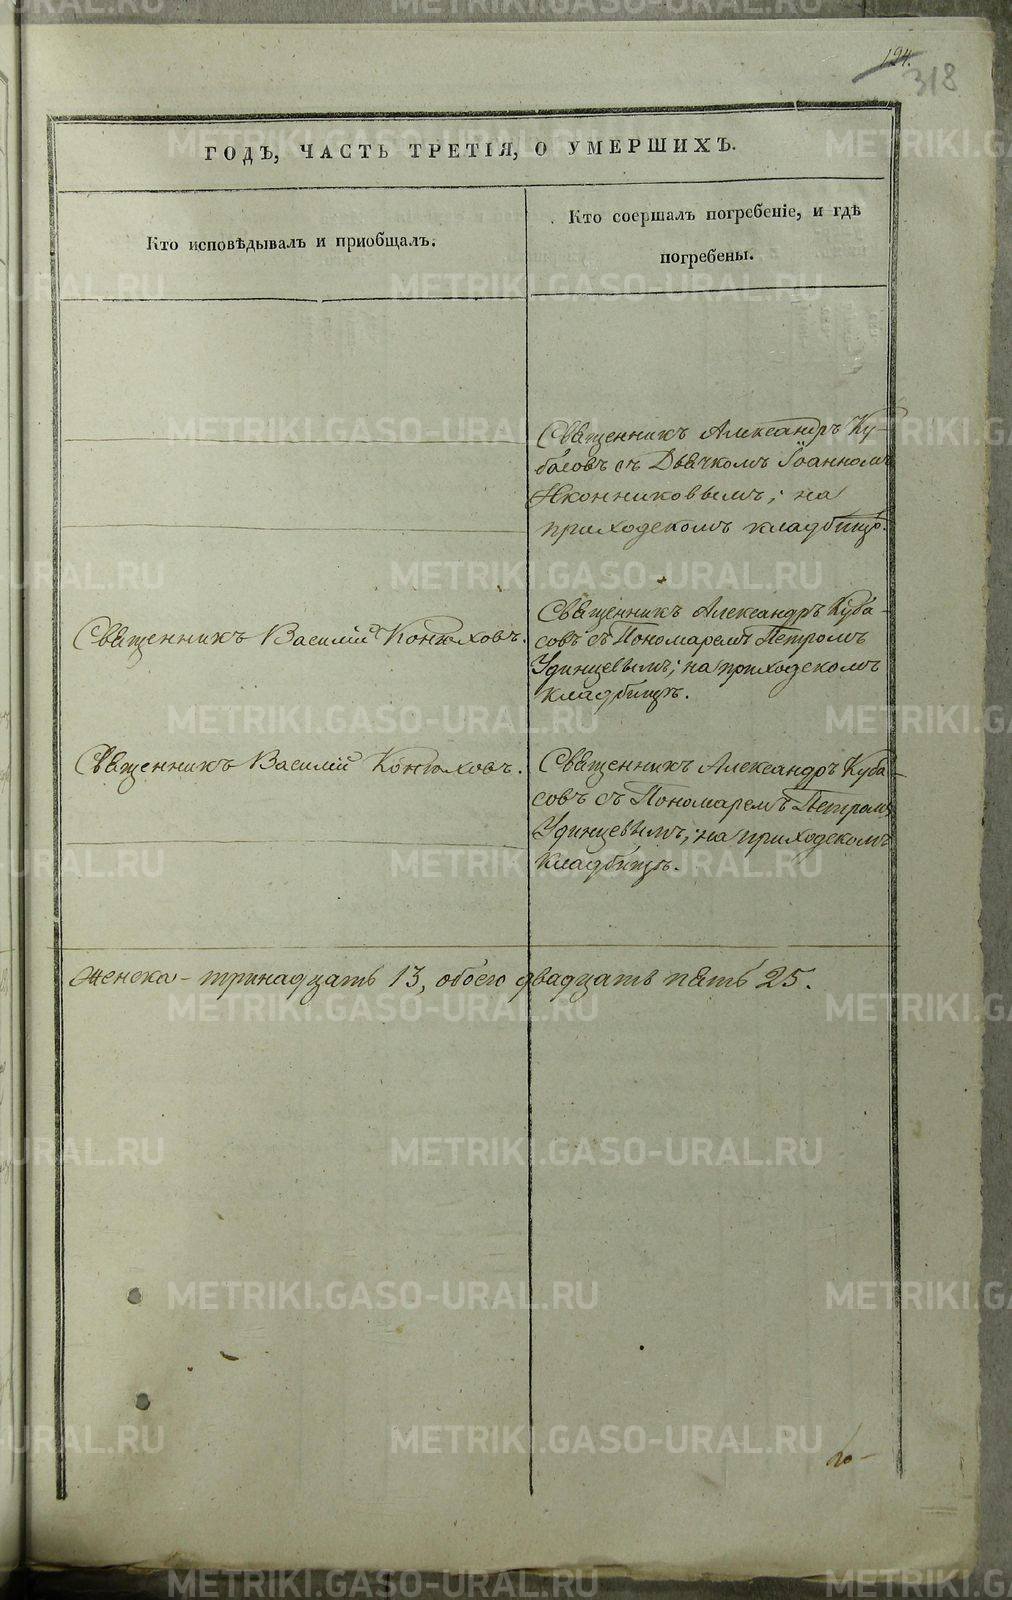 124.
318
ГОДЪ, ЧАСТЬ ТРЕТІЯ, О УМЕРШИХЪ.
Кто исповѣдывалъ и пріобщалъ.
Кто соершалъ погребеніе, и гдѣ
погребены.
Священникъ Александръ Ку-
басовъ съ Дьячкомъ Іоанномъ
Иконниковымъ; на
приходскомъ кладбищѣ.
Священникъ Василій Конюховъ.
Священникъ Александръ Куба-
совъ съ Пономаремъ Петромъ
Удинцевымъ; на приходскомъ
кладбищѣ.
Священникъ Василій Конюховъ.
Священникъ Александръ Куба-
совъ съ Пономаремъ Петромъ
Удинцевымъ; на приходскомъ
кладбищѣ.
женска - тринадцать 13, обоего двадцать пять 25.
METRIKI.GASO-URAL.RU